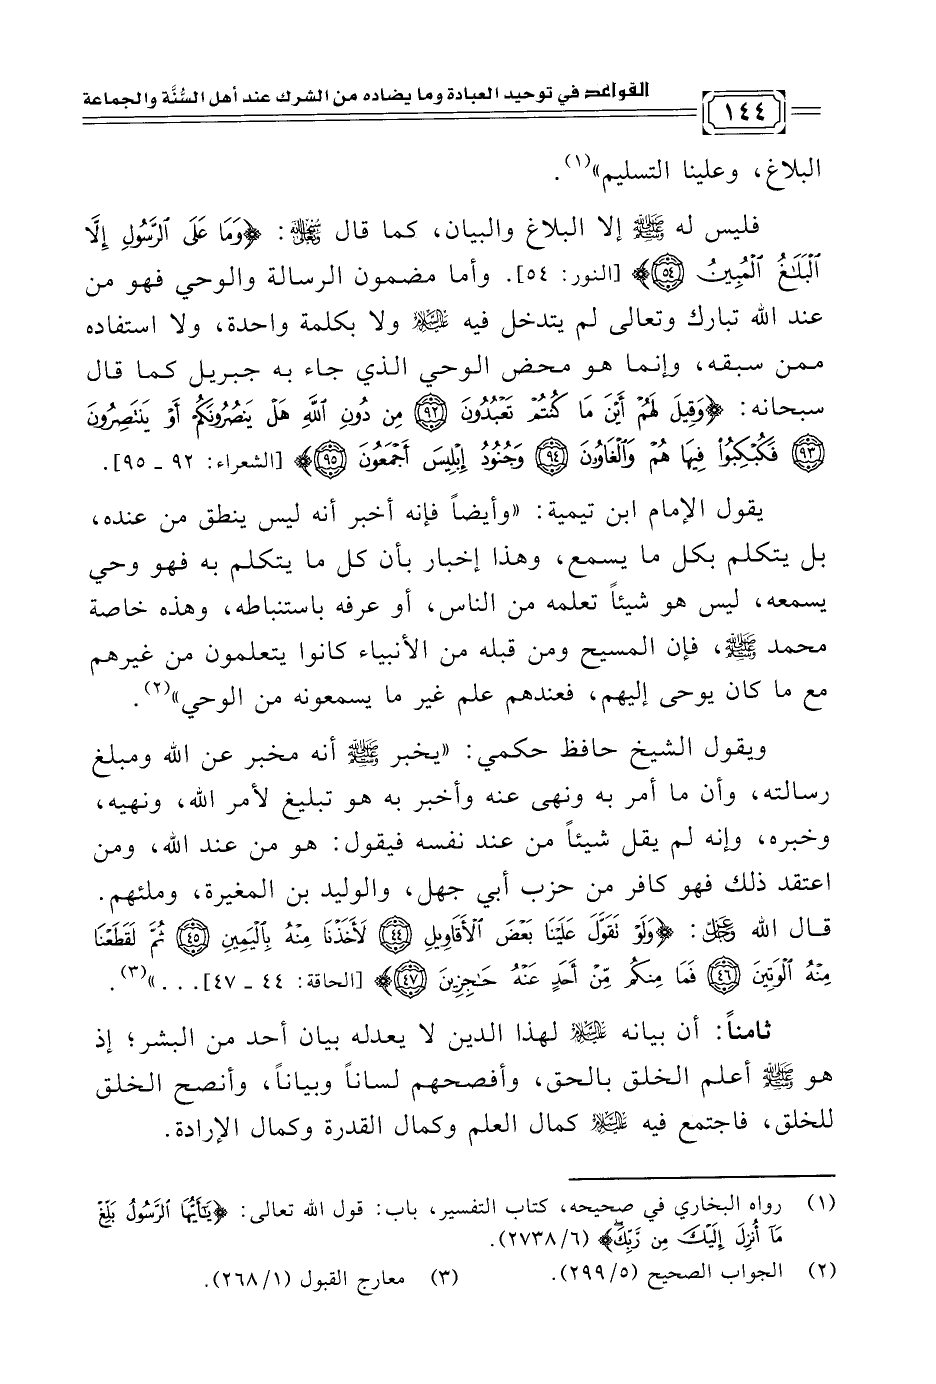 القواعد في توحيد العبادة وما يضاده من الشرك عند أهل السُّنَّة والجماعة
١٤٤
البلاغ، وعلينا التسليم»(١).
فليس له ﷺ إلا البلاغ والبيان، كما قال تعالى: ﴿وَمَا عَلَى ٱلرَّسُولِ إِلَّا
ٱلْبَلَٰغُ ٱلْمُبِينُ ۝٥٤﴾ [النور: ٥٤]. وأما مضمون الرسالة والوحي فهو من
عند الله تبارك وتعالى لم يتدخل فيه عليه السلام ولا بكلمة واحدة، ولا استفاده
ممن سبقه، وإنما هو محض الوحي الذي جاء به جبريل كما قال
سبحانه: ﴿وَقِيلَ لَهُمْ أَيْنَ مَا كُنتُمْ تَعْبُدُونَ ۝٩٢ مِن دُونِ ٱللَّهِ هَلْ يَنصُرُونَكُمْ أَوْ يَنتَصِرُونَ
۝٩٣ فَكُبْكِبُوا۟ فِيهَا هُمْ وَٱلْغَاوُۥنَ ۝٩٤ وَجُنُودُ إِبْلِيسَ أَجْمَعُونَ ۝٩٥﴾ [الشعراء: ٩٢ ـ ٩٥].
يقول الإمام ابن تيمية: «وأيضاً فإنه أخبر أنه ليس ينطق من عنده،
بل يتكلم بكل ما يسمع، وهذا إخبار بأن كل ما يتكلم به فهو وحي
يسمعه، ليس هو شيئاً تعلمه من الناس، أو عرفه باستنباطه، وهذه خاصة
محمد ﷺ، فإن المسيح ومن قبله من الأنبياء كانوا يتعلمون من غيرهم
مع ما كان يوحى إليهم، فعندهم علم غير ما يسمعونه من الوحي»(٢).
ويقول الشيخ حافظ حكمي: «يخبر ﷺ أنه مخبر عن الله ومبلغ
رسالته، وأن ما أمر به ونهى عنه وأخبر به هو تبليغ لأمر الله، ونهيه،
وخبره، وإنه لم يقل شيئاً من عند نفسه فيقول: هو من عند الله، ومن
اعتقد ذلك فهو كافر من حزب أبي جهل، والوليد بن المغيرة، وملئهم.
قال الله عز وجل: ﴿وَلَوْ تَقَوَّلَ عَلَيْنَا بَعْضَ ٱلْأَقَاوِيلِ ۝٤٤ لَأَخَذْنَا مِنْهُ بِٱلْيَمِينِ ۝٤٥ ثُمَّ لَقَطَعْنَا
مِنْهُ ٱلْوَتِينَ ۝٤٦ فَمَا مِنكُم مِّنْ أَحَدٍ عَنْهُ حَٰجِزِينَ ۝٤٧﴾ [الحاقة: ٤٤ ـ ٤٧]. . . .»(٣).
ثامناً: أن بيانه عليه السلام لهذا الدين لا يعدله بيان أحد من البشر؛ إذ
هو ﷺ أعلم الخلق بالحق، وأفصحهم لساناً وبياناً، وأنصح الخلق
للخلق، فاجتمع فيه عليه السلام كمال العلم وكمال القدرة وكمال الإرادة.
(١) رواه البخاري في صحيحه، كتاب التفسير، باب: قول الله تعالى: ﴿يَٰٓأَيُّهَا ٱلرَّسُولُ بَلِّغْ
مَآ أُنزِلَ إِلَيْكَ مِن رَّبِّكَ﴾ (٢٧٣٨/٦).
(٢) الجواب الصحيح (٢٩٩/٥). (٣) معارج القبول (٢٦٨/١).